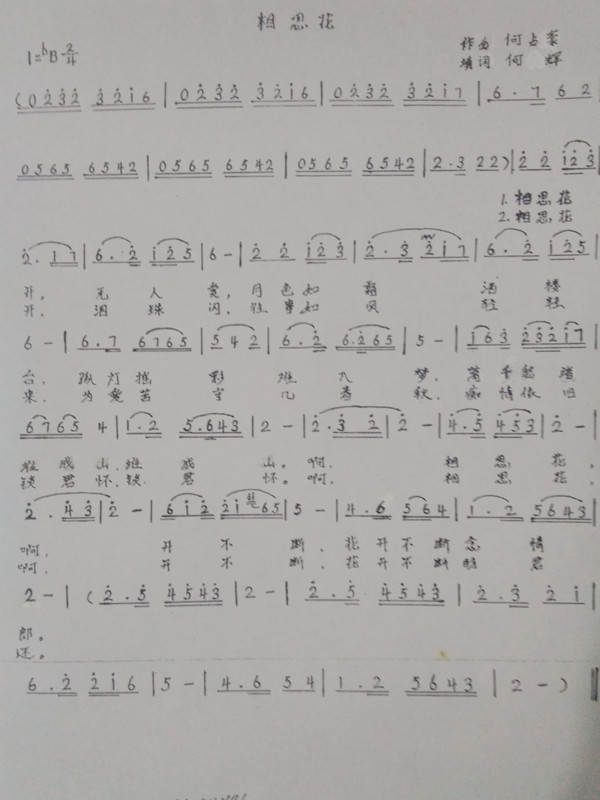 相思花
1=ᵇB 2/4
作曲 何占豪
填词 何 辉
(0 2̇ 3̇ 2̇ 3̇ 2̇ 1̇ 6 | 0 2̇ 3̇ 2̇ 3̇ 2̇ 1̇ 6 | 0 2̇ 3̇ 2̇ 3̇ 2̇ 1̇ 7 | 6 . 7 6 2 |
0 5 6 5 6 5 4 2 | 0 5 6 5 6 5 4 2 | 0 5 6 5 6 5 4 2 | 2 . 3 2 2 ) | 2̇ 2̇ 1̇ 2̇ 3̇ |
1. 相思花
2. 相思花
2̇ . 1̇ 7 | 6 . 2̇ 1̇ 2̇ 5 | 6 - | 2̇ 2̇ 1̇ 2̇ 3̇ | 2̇ . 3̇ 2̇ 1̇ 7 | 6 . 2̇ 1̇ 2̇ 5 |
开, 无人赏, 月色如 洒楼
开, 泪珠闪, 往事如风 轻轻
6 - | 6 . 7 6 7 6 5 | 5 4 2 | 6 . 2̇ 6 . 2̇ 6 5 | 5 - | 1̇ 6 3̇ 2̇ 3̇ 2̇ 1̇ 7 |
台, 灯 影难入梦, 万千愁
来, 为爱苦 几春秋, 痴情依旧
6 7 6 5 4 | 1 . 2 5 . 6 4 3 | 2 - | 2̇ . 3̇ 2̇ | 2̇ - | 4̇ . 5̇ 4̇ 5̇ 3̇ | 2̇ - |
山。啊, 相思花。
锁君怀, 锁君怀。啊, 相思花。
2̇ . 4̇ 3̇ | 2̇ - | 6 1̇ 2̇ 2̇ 1̇ 6 5 | 5 - | 4 . 6 5 6 4 | 1 . 2 5 6 4 3 |
啊, 开不断, 花开不断念情
啊, 开不断, 花开不断 君
2 - | ( 2̇ . 5̇ 4̇ 5̇ 4̇ 3̇ | 2 - | 2̇ . 5̇ 4̇ 5̇ 4̇ 3̇ | 2̇ . 3̇ 2̇ 1̇ |
郎。
还。
6 . 2̇ 2̇ 1̇ 6 | 5 - | 4 . 6 5 4 | 1 . 2 5 6 4 3 | 2 - ) ‖